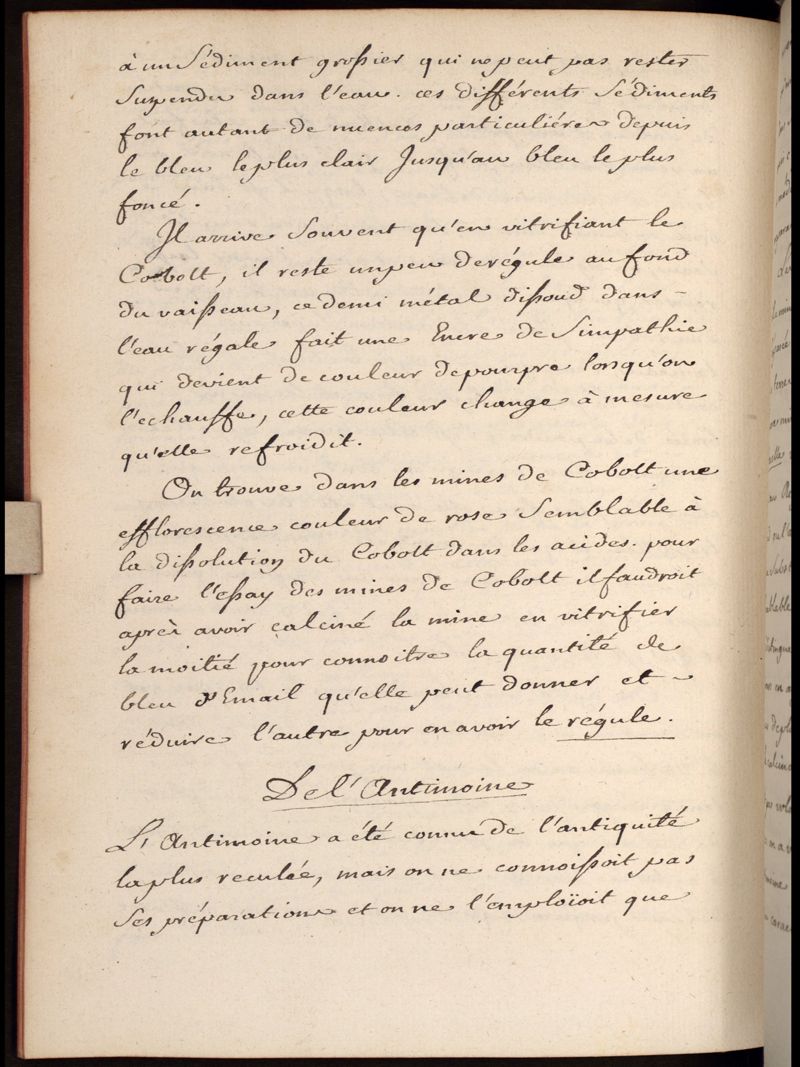 à un Sédiment grossier qui ne peut pas rester
Suspendu dans l'eau. ces différents Sédiments
font autant de nuences particuliéres depuis
le bleu le plus clair Jusqu'au bleu le plus
foncé.
Il arrive Souvent qu'en vitrifiant le
Cobolt, il reste un peu de régule au fond
du vaisseau, ce demi métal dissoud dans
l'eau régale fait une Encre de Simpathie
qui devient de couleur de pourpre lorsqu'on
l'echauffe, cette couleur change à mesure
qu'elle refroidit.
On trouve dans les mines de Cobolt une
efflorescence couleur de rose Semblable à
la dissolution du Cobolt dans les acides. pour
faire l'essay des mines de Cobolt il faudroit
après avoir calciné la mine en vitrifier
la moitié pour connoitre la quantité de
bleu d'Email qu'elle peut donner et
réduire l'autre pour en avoir le régule.
De l'Antimoine
L'Antimoine a été connu de l'antiquité
la plus reculée, mais on ne connoissoit pas
Ses préparations et on ne l'emploïoit que